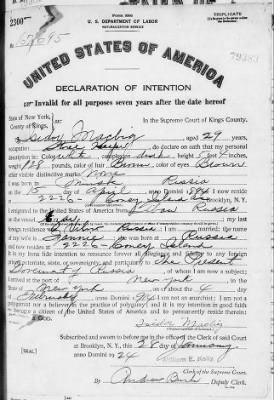 Form 2202
TRIPLICATE
2300
U. S. DEPARTMENT OF LABOR
NATURALIZATION SERVICE
UNITED STATES OF AMERICA
DECLARATION OF INTENTION
Invalid for all purposes seven years after the date hereof
State of New York,
County of Kings,
In the Supreme Court of Kings County.
aged 29 years,
occupation Store Keeper do declare on oath that my personal
description is: Color white, complexion dark, height 5 feet inches,
weight pounds, color of hair Brown, color of eyes Brown
other visible distinctive marks None
I was born in Minsk Russia
on the day of April, anno Domini; I now reside
at 2226- Coney Island Ave Brooklyn, N. Y.
I emigrated to the United States of America from Russia
my last
foreign residence was Russia; I am married; the name
of my wife is Fannie; she was born at Russia
and now resides at 2226- Coney Island
It is my bona fide intention to renounce forever all allegiance and fidelity to any foreign
prince, potentate, state, or sovereignty, and particularly to The Present
Government of Russia, of whom I am now a subject;
I arrived at the port of New York, in the
State of New York, on or about the 4 day
of February, anno Domini; I am not an anarchist; I am not a
polygamist nor a believer in the practice of polygamy; and it is my intention in good faith
to become a citizen of the United States of America and to permanently reside therein:
SO HELP ME GOD.
Subscribed and sworn to before me in the office of the Clerk of said Court
at Brooklyn, N. Y., this 28 day of
anno Domini 1924
[SEAL.]
William E. Kelly
Clerk of the Supreme Court.
By Deputy Clerk.